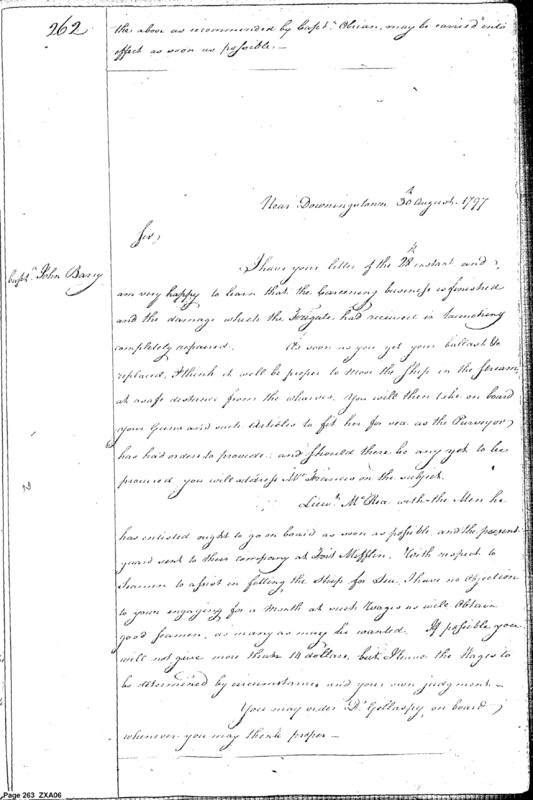 262
the above as recommended by Capt. Obrian, may be carried into
effect as soon as possible.—
Near Downingstown 30th August 1797
Sir,
Capt. John Barry
I have your letter of the 28th instant and,
am very happy to learn that the Careening business is finished
and the damage which the Frigate, had received in launching
completely repaired. As soon as you get your ballast &c
replaced, I think it will be proper to move the Ship in the stream
at a safe distance from the wharves. You will then take on board
your Guns and such Articles to fit her for sea as the Purveyor,
has had orders to provide: and should there be any yet to be
procured you will address Mr Francis on the subject.
Lieut. McRea with the Men he
has enlisted ought to go on board as soon as possible, and the present
guard sent to their company at Fort Mifflin. With respect to
Seamen to assist in fitting the Ship for Sea, I have no objection
to your engaging for a Month at such Wages as will Obtain
good Seamen, as many as may be wanted. If possible you
will not give more than 14 dollars, but I leave the Wages to
be determined by circumstances and your own judgment.—
You may order Dr Gillaspy, on board,
whenever you may think proper—
Page 263 ZXA06